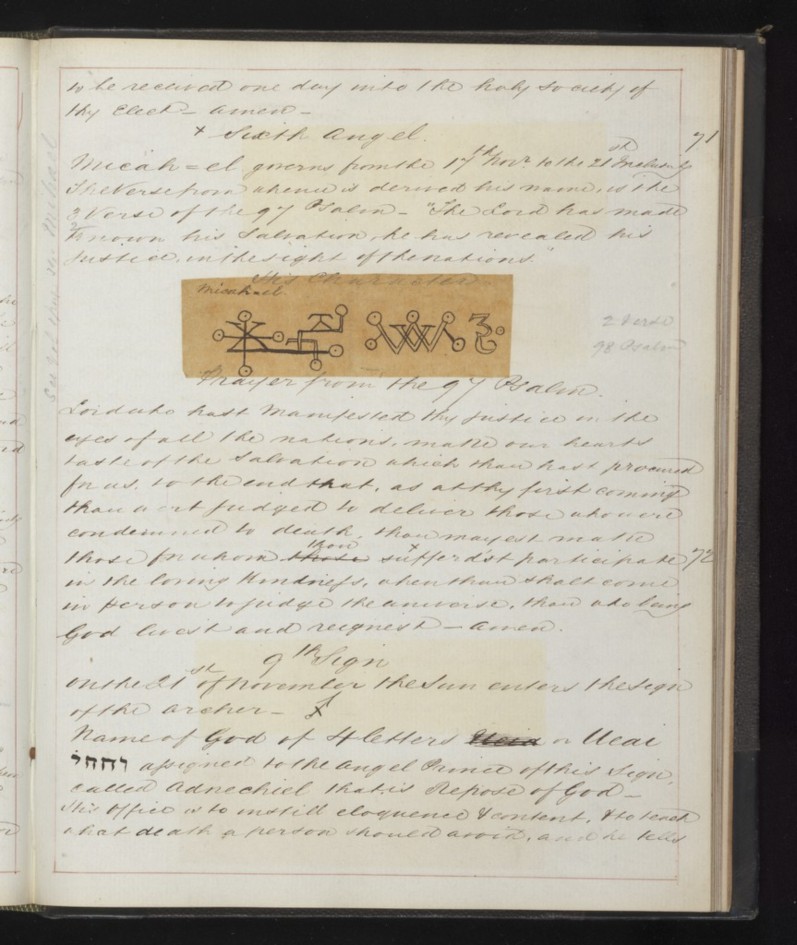 to be received one day into the holy society of
thy Elect - amen -
+ Sixth Angel.
71
Micah=el governs from the 17th Novr. to the 21st Inclusively
The Verse from whence is derived his name, is the
2 Verse of the 97 Psalm - "The Lord has made
known his Salvation, he has revealed his
Justice, in the sight of the nations."
His Character
Micah=el
2 Verse
98 Psalm
Prayer from the 97 Psalm.
Lord who hast Manifested thy Justice in the
eyes of all the nations, make our hearts
taste of the Salvation which thou hast procured
for us, to the end that, as at thy first coming
thou wert judged to deliver those who were
condemned to death, thou mayest make
those for whom those thou suffer'dst participate 72
in the loving Kindness, when thou shalt come
in person to judge the universe, thou who being
God livest and reignest - amen.
9th Sign
On the 21st of November the Sun enters the sign
of the archer -
Name of God of 4 letters or Ueai
וחחי assigned to the angel Prince of this Sign,
called Adnechiel that is Repose of God -
His Office is to instill eloquence & content, & to teach
what death a person should avoid, and he tells